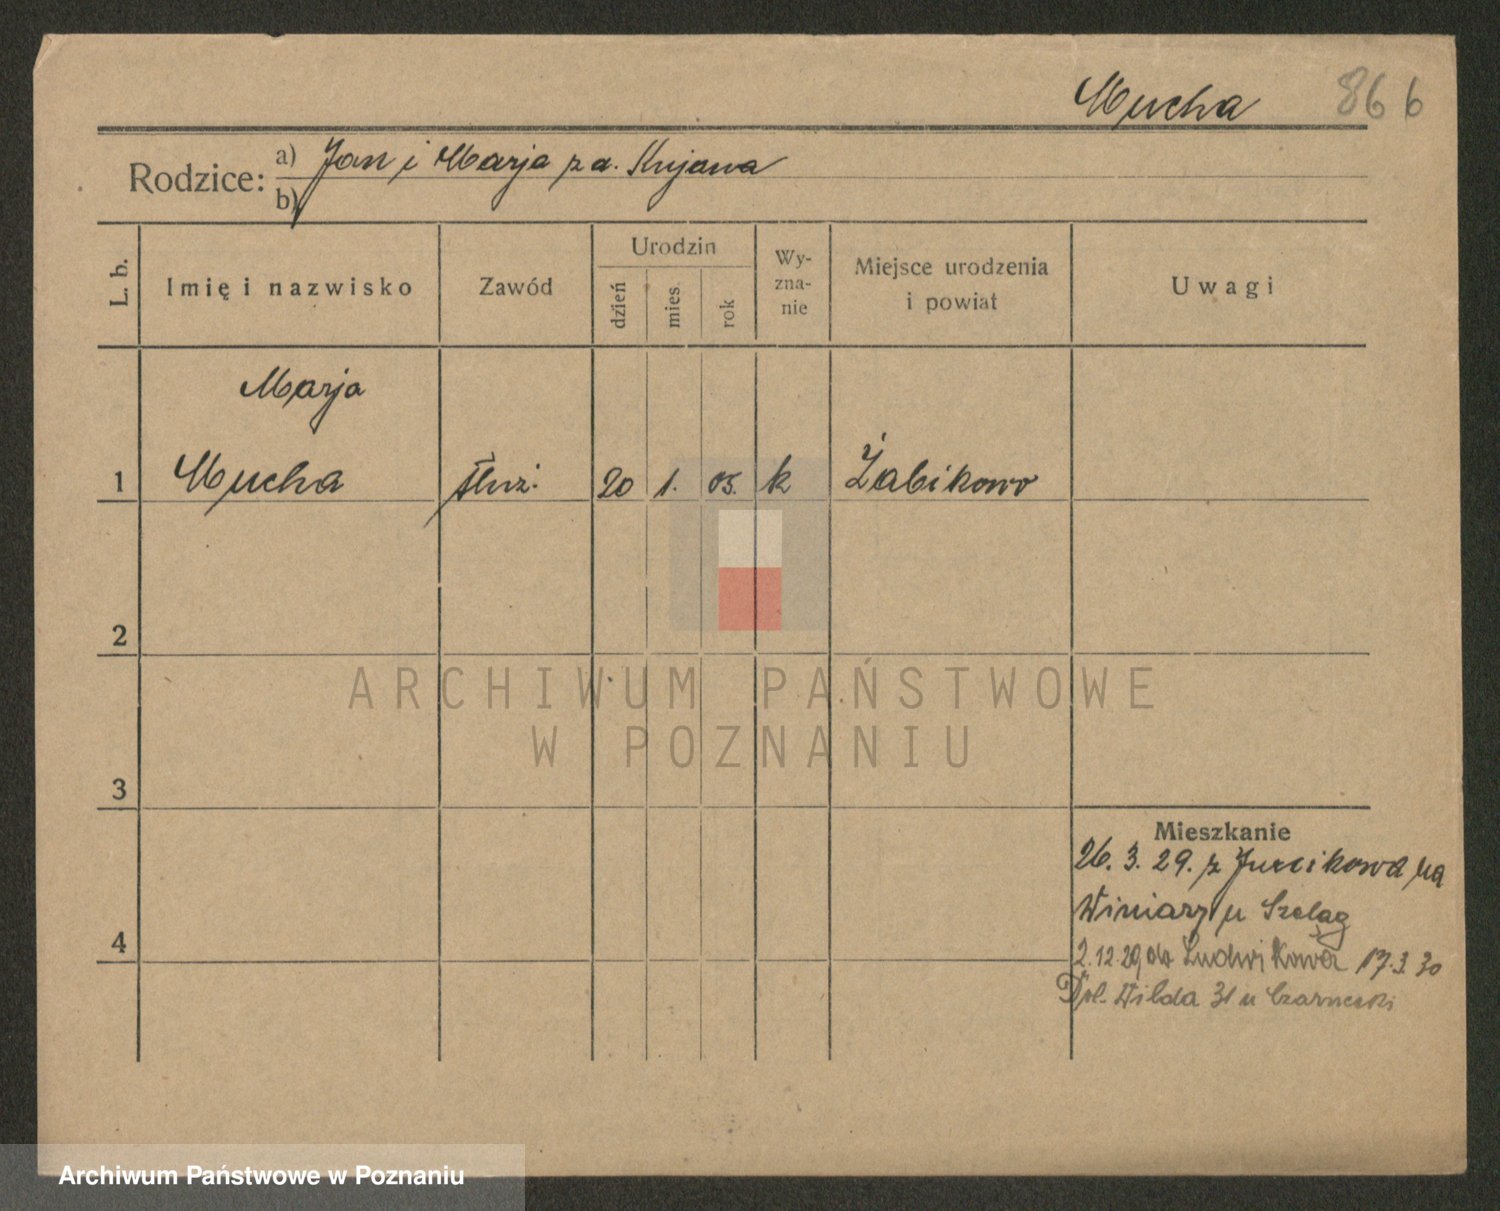 Mucha 86 6
Rodzice: a) Jan i Marja z d. Kujawa
b)
L. b.
Imię i nazwisko
Zawód
Urodzin
dzień
mies.
rok
Wy-
zna-
nie
Miejsce urodzenia
i powiat
Uwagi
Marja
1 Mucha służ. 20 1. 05. k Żabikowo
2
3
4
Mieszkanie
26. 3. 29. z Juncikowa na
Winiary u Szeląg
2.12.29 do Ludwikowa 17.3.30
Dol. Wilda 31 u Czarnecki
ARCHIWUM PAŃSTWOWE
W POZNANIU
Archiwum Państwowe w Poznaniu